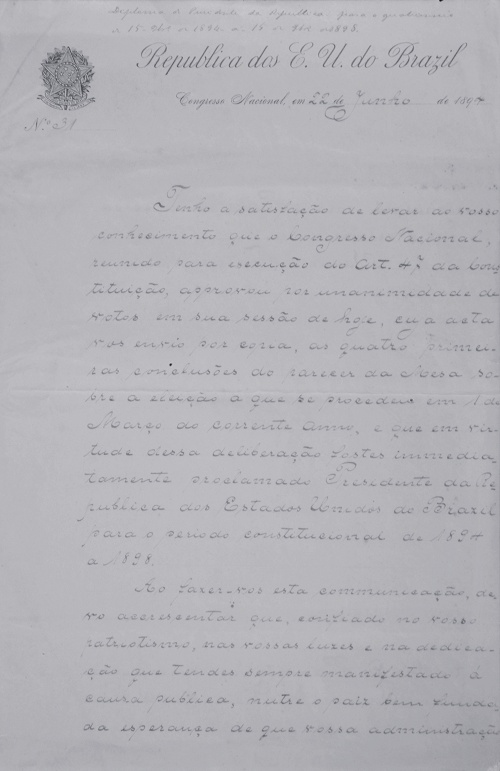 Diploma de Presidente da Republica, para o quadriennio
de 15 de 9bro de 1894 a 15 de 9bro de 1898.
Republica dos E. U. do Brazil
Congresso Nacional, em 22 de Junho de 1894
N.º 31
Tenho a satisfação de levar ao vosso
conhecimento que o Congresso Nacional,
reunido para execução do Art. 47 da Cons
tituição, approvou por unanimidade de
votos em sua sessão de hoje, cuja acta
vos envio por copia, as quatro primei
ras conclusões do parecer da Mesa so
bre a eleição a que se procedeu em 1 de
Março do corrente anno, e que em vir
tude dessa deliberação fostes immedia
tamente proclamado Presidente da Re
publica dos Estados Unidos do Brazil
para o periodo constitucional de 1894
a 1898.
Ao fazer-vos esta communicação, de
vo accrescentar que, confiado no vosso
patriotismo, nas vossas luzes e na dedica
ção que tendes sempre manifestado á
causa publica, nutre o paiz bem funda
da esperança de que vossa administração